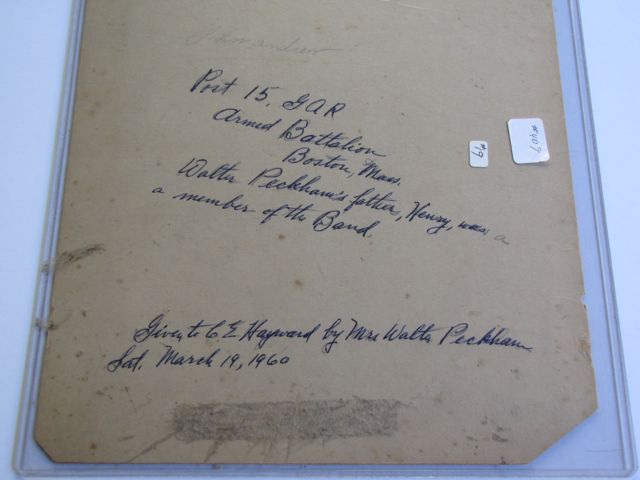 Post 15, GAR
Armed Battalion
Boston, Mass.
Walter Peckham's father, Henry, was a
a member of the Band.
Given to C E Hayward by Mrs Walter Peckham
Sat. March 19, 1960